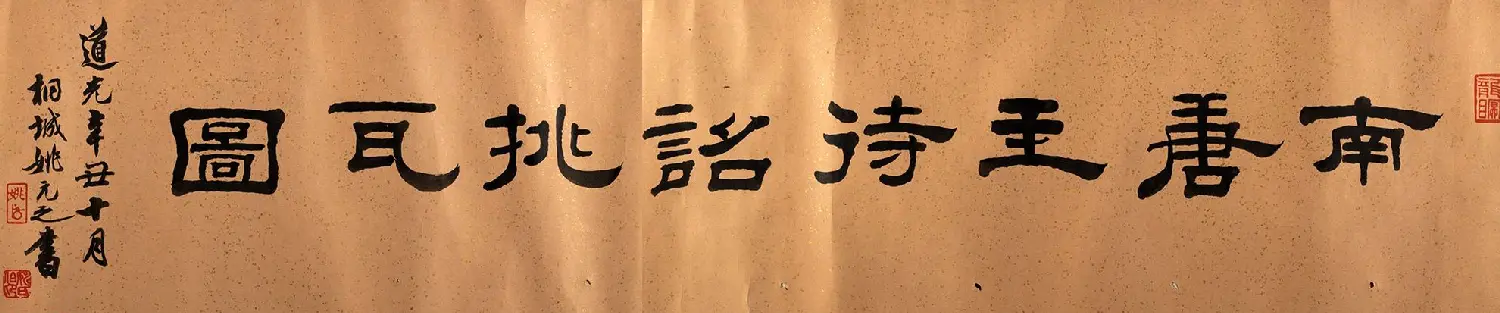 南唐王待詔挑耳圖
道光辛丑十月
桐城姚元之書